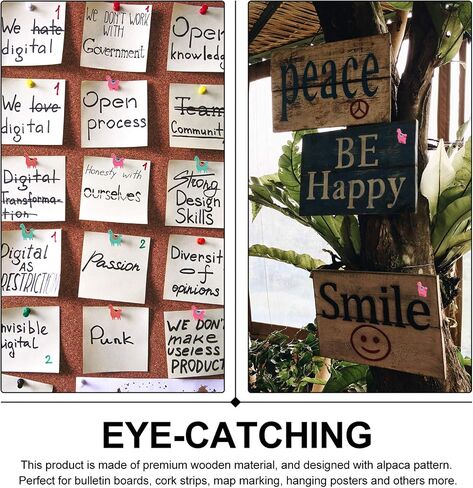 We hate
digital
We DON'T WORK
WITH
Government
Open
knowledg
We love
digital
1
Open
process
1
Team
Community
Digital
Transforma-
tion
1
Honesty with
ourselves
1
Strong
Design
Skills
Digital
AS
1
Passion
2
Diversit
of
opinions
nvisible
igital
2
Punk
WE DON'T
MAKE
USELESS
PRODUCT
peace
BE
Happy
Smile
EYE-CATCHING
This product is made of premium wooden material, and designed with alpaca pattern.
Perfect for bulletin boards, cork strips, map marking, hanging posters and others more.